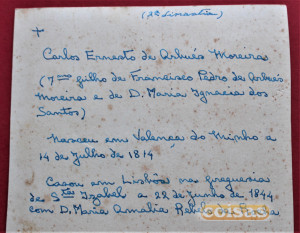 (1ª Linastia)
+
Carlos Ernesto de Arbués Moreira
(7º filho de Francisco Pedro de Arbués
Moreira e de D. Maria Ignacia dos
Santos)
Nasceu em Valença do Minho a
14 de Julho de 1814
Casou em Lisbôa na freguesia
de Stª Izabel a 22 de Junho de 1844
com D. Maria Amalia
coisas